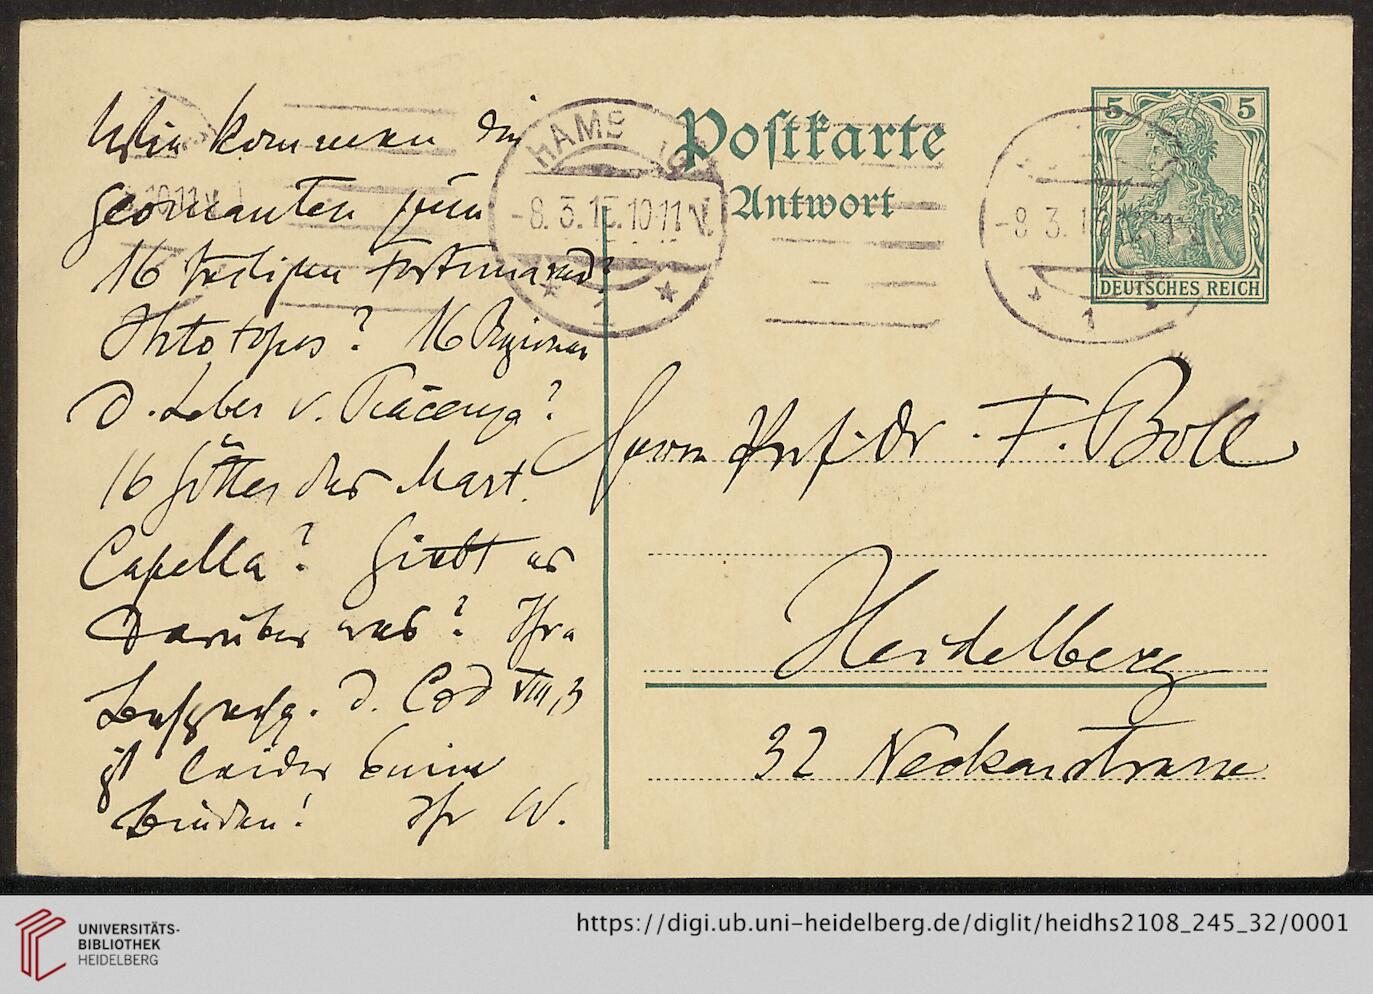 Wie kommen die
Geomanten zum
16 
? 16 Regionen
d. Leber v. Piacenza?
16 Götter des Mart.
Capella? Giebt es
darüber was? Ihre
d. Cod VIII, 3
ist leider beim
Binden! Ihr W.
HAMB
-8.3.15.10-11V.
* 1 *
Postkarte
Antwort
5 5
DEUTSCHES REICH
-8.3.1
1
Herrn Prof. Dr. F. Boll
Heidelberg
32 Neckarstrasse
UNIVERSITÄTS-
BIBLIOTHEK
HEIDELBERG
https://digi.ub.uni-heidelberg.de/diglit/heidhs2108_245_32/0001